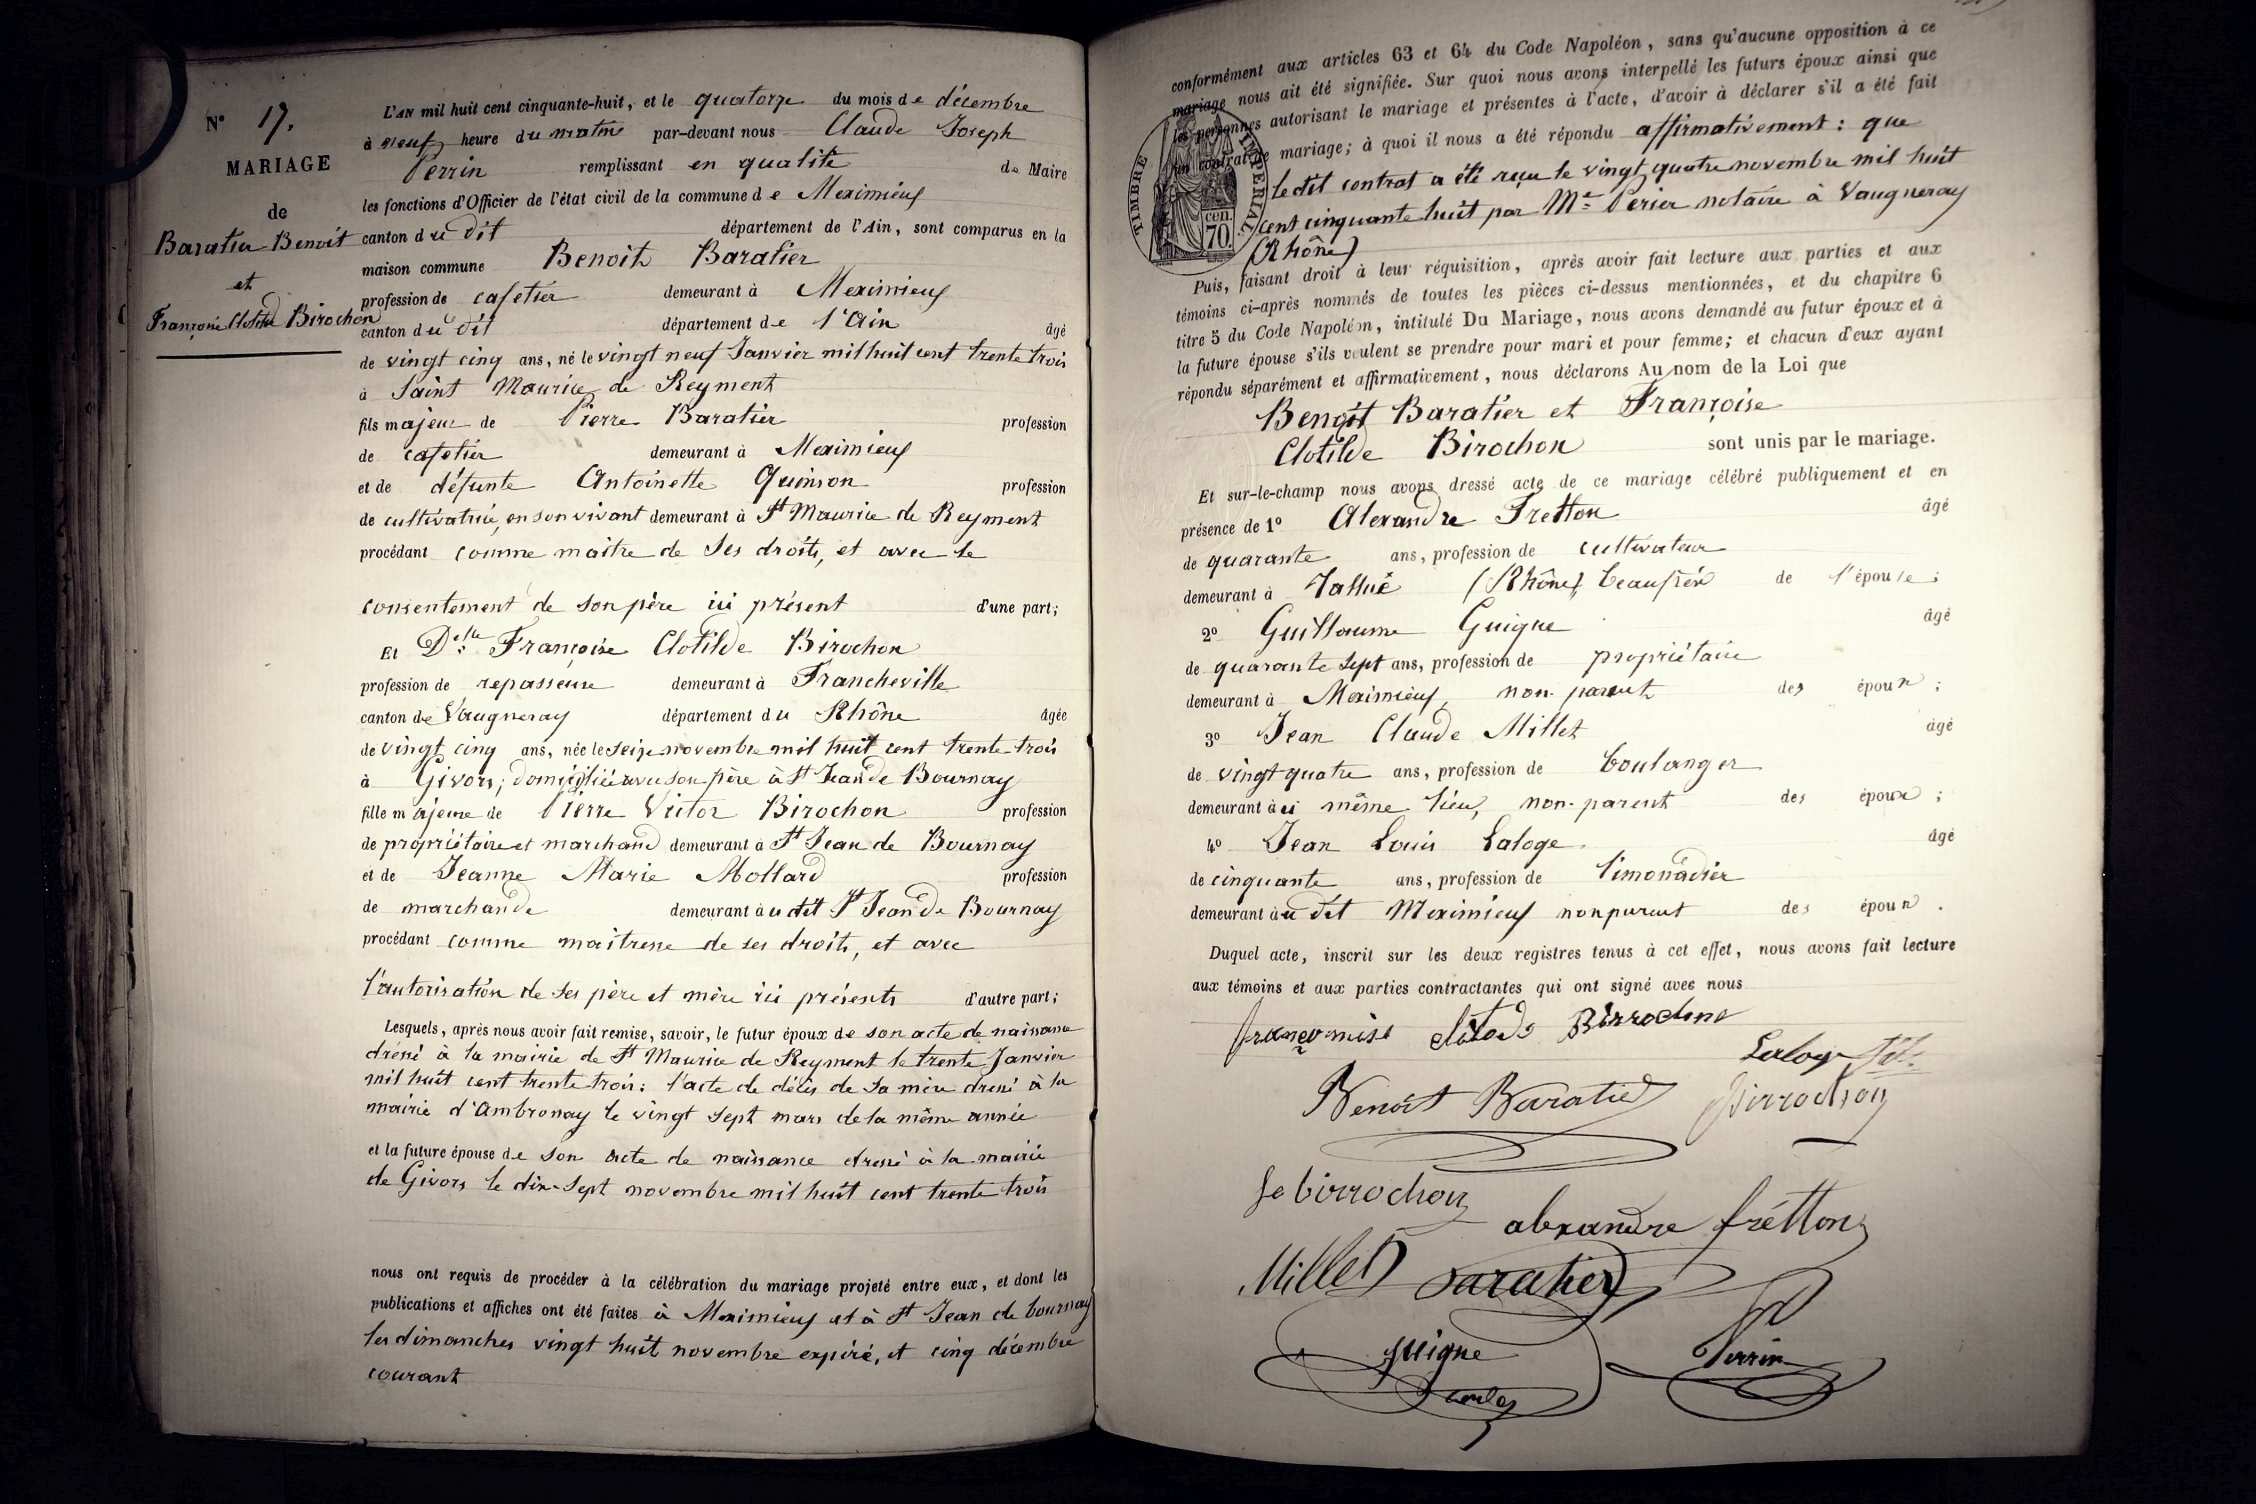 N° 17.
MARIAGE
de
Baratier Benoit
et
Françoise Clotilde Birochon
L'AN mil huit cent cinquante-huit, et le quatorze du mois de décembre
à neuf heure du matin par-devant nous Claude Joseph
Perrin remplissant en qualité de Maire
les fonctions d'Officier de l'état civil de la commune de Meximieux
canton du dit département de l'Ain, sont comparus en la
maison commune Benoit Baratier
profession de cafetier demeurant à Meximieux
canton du dit département de l'Ain âgé
de vingt cinq ans, né le vingt neuf Janvier mil huit cent trente trois
à Saint Maurice de Reyment
fils majeur de Pierre Baratier profession
de cafetier demeurant à Meximieux
et de défunte Antoinette Quinson profession
de cultivatrice, en son vivant demeurant à St Maurice de Reyment
procédant comme maître de ses droits, et avec le
consentement de son père ici présent d'une part;
Et Delle Françoise Clotilde Birochon
profession de repasseuse demeurant à Francheville
canton de Vaugneray département du Rhône âgée
de vingt cinq ans, née le seize novembre mil huit cent trente-trois
à Givors; domiciliée avec son père à St Jean de Bournay
fille majeure de Pierre Victor Birochon profession
de propriétaire et marchand demeurant à St Jean de Bournay
et de Jeanne Marie Mollard profession
de marchande demeurant au dit St Jean de Bournay
procédant comme maitresse de ses droits, et avec
l'autorisation de ses père et mère ici présents d'autre part;
Lesquels, après nous avoir fait remise, savoir, le futur époux de son acte de naissance
dréssé à la mairie de St Maurice de Reyment le trente Janvier
mil huit cent trente trois: l'acte de décès de sa mère dressé à la
mairie d'Ambronay le vingt sept mars de la même année
et la future épouse de son acte de naissance dressé à la mairie
de Givors le dix-sept novembre mil huit cent trente trois
nous ont requis de procéder à la célébration du mariage projeté entre eux, et dont les
publications et affiches ont été faites à Meximieux et à St Jean de bournay
les dimanches vingt huit novembre expiré, et cinq décembre
courant
conformément aux articles 63 et 64 du Code Napoléon, sans qu'aucune opposition à ce
mariage nous ait été signifiée. Sur quoi nous avons interpellé les futurs époux ainsi que
les personnes autorisant le mariage et présentes à l'acte, d'avoir à déclarer s'il a été fait
un contrat de mariage; à quoi il nous a été répondu affirmativement: que
le dit contrat a été reçu le vingt quatre novembre mil huit
cent cinquante huit par Me Périer notaire à Vaugneray
(Rhône)
TIMBRE IMPERIAL
70 cen.
Puis, faisant droit à leur réquisition, après avoir fait lecture aux parties et aux
témoins ci-après nommés de toutes les pièces ci-dessus mentionnées, et du chapitre 6
titre 5 du Code Napoléon, intitulé Du Mariage, nous avons demandé au futur époux et à
la future épouse s'ils veulent se prendre pour mari et pour femme; et chacun d'eux ayant
répondu séparément et affirmativement, nous déclarons Au nom de la Loi que
Benoit Baratier et Françoise
Clotilde Birochon sont unis par le mariage.
Et sur-le-champ nous avons dressé acte de ce mariage célébré publiquement et en
présence de 1° Alexandre Fretton âgé
de quarante ans, profession de cultivateur
demeurant à (Rhône), beaufrère de l'épouse;
2° Guillaume Guigue âgé
de quarante sept ans, profession de propriétaire
demeurant à Meximieux, non-parent des époux;
3° Jean Claude Millet âgé
de vingt quatre ans, profession de boulanger
demeurant à ci même lieu, non-parent des époux;
4° Jean Louis Laloge âgé
de cinquante ans, profession de limonadier
demeurant au dit Meximieux non parent des époux.
Duquel acte, inscrit sur les deux registres tenus à cet effet, nous avons fait lecture
aux témoins et aux parties contractantes qui ont signé avec nous
Birrochon
Laloge
Benoit Baratier Birrochon
fe birrochon
alexandre frétton
Millet Baratier
guigue Perrin